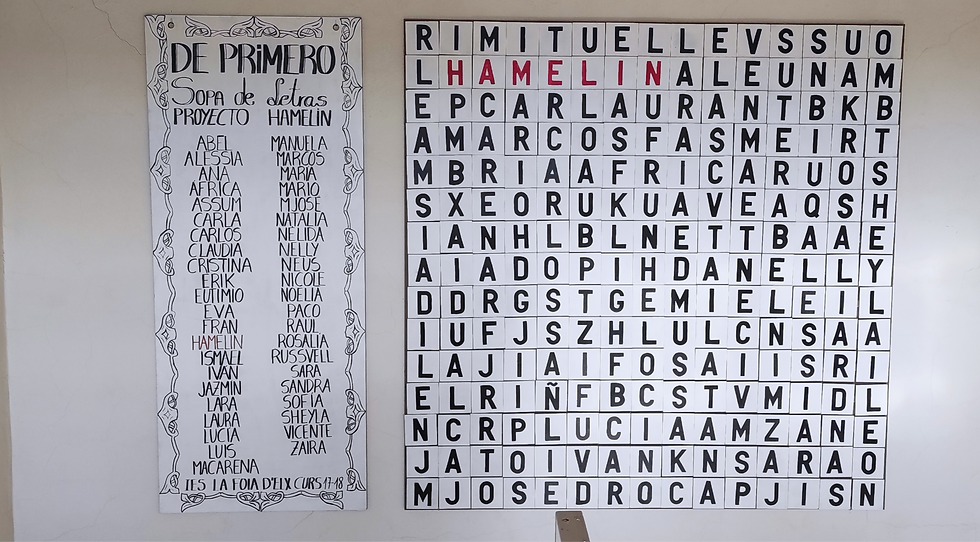 DE PRIMERO
SOPA de Letras
PROYECTO HAMELIN
ABEL
ALESSIA
ANA
AFRICA
ASSUM
CARLA
CARLOS
CLAUDIA
CRISTINA
ERIK
EUTIMIO
EVA
FRAN
HAMELIN
ISMAEL
IVAN
JAZMIN
LARA
LAURA
LUCIA
LUIS
MACARENA
MANUELA
MARCOS
MARIA
MARIO
MJOSE
NATALIA
NELIDA
NELLY
NEUS
NICOLE
NOELIA
PACO
RAUL
ROSALIA
RUSSVELL
SARA
SANDRA
SOFIA
SHEYLA
VICENTE
ZAIRA
IES LA FOIA D'ELX CURS 17-18
R I M I T U E L L E V S S U O
L H A M E L I N A L E U N A M
E P C A R L A U R A N T B K B
A M A R C O S F A S M E I R T
M B R I A A F R I C A R U O S
S X E O R U K U A V E A Q S H
I A N H L B L N E T T B A A E
A I A D O P I H D A N E L L Y
D D R G S T G E M I E L E I L
I U F J S Z H L U L C N S A A
L A J I A I F O S A I I S R I
E L R I Ñ F B C S T V M I D L
N C R P L U C I A A M Z A N E
J A T O I V A N K N S A R A O
M J O S E D R O C A P J I S N